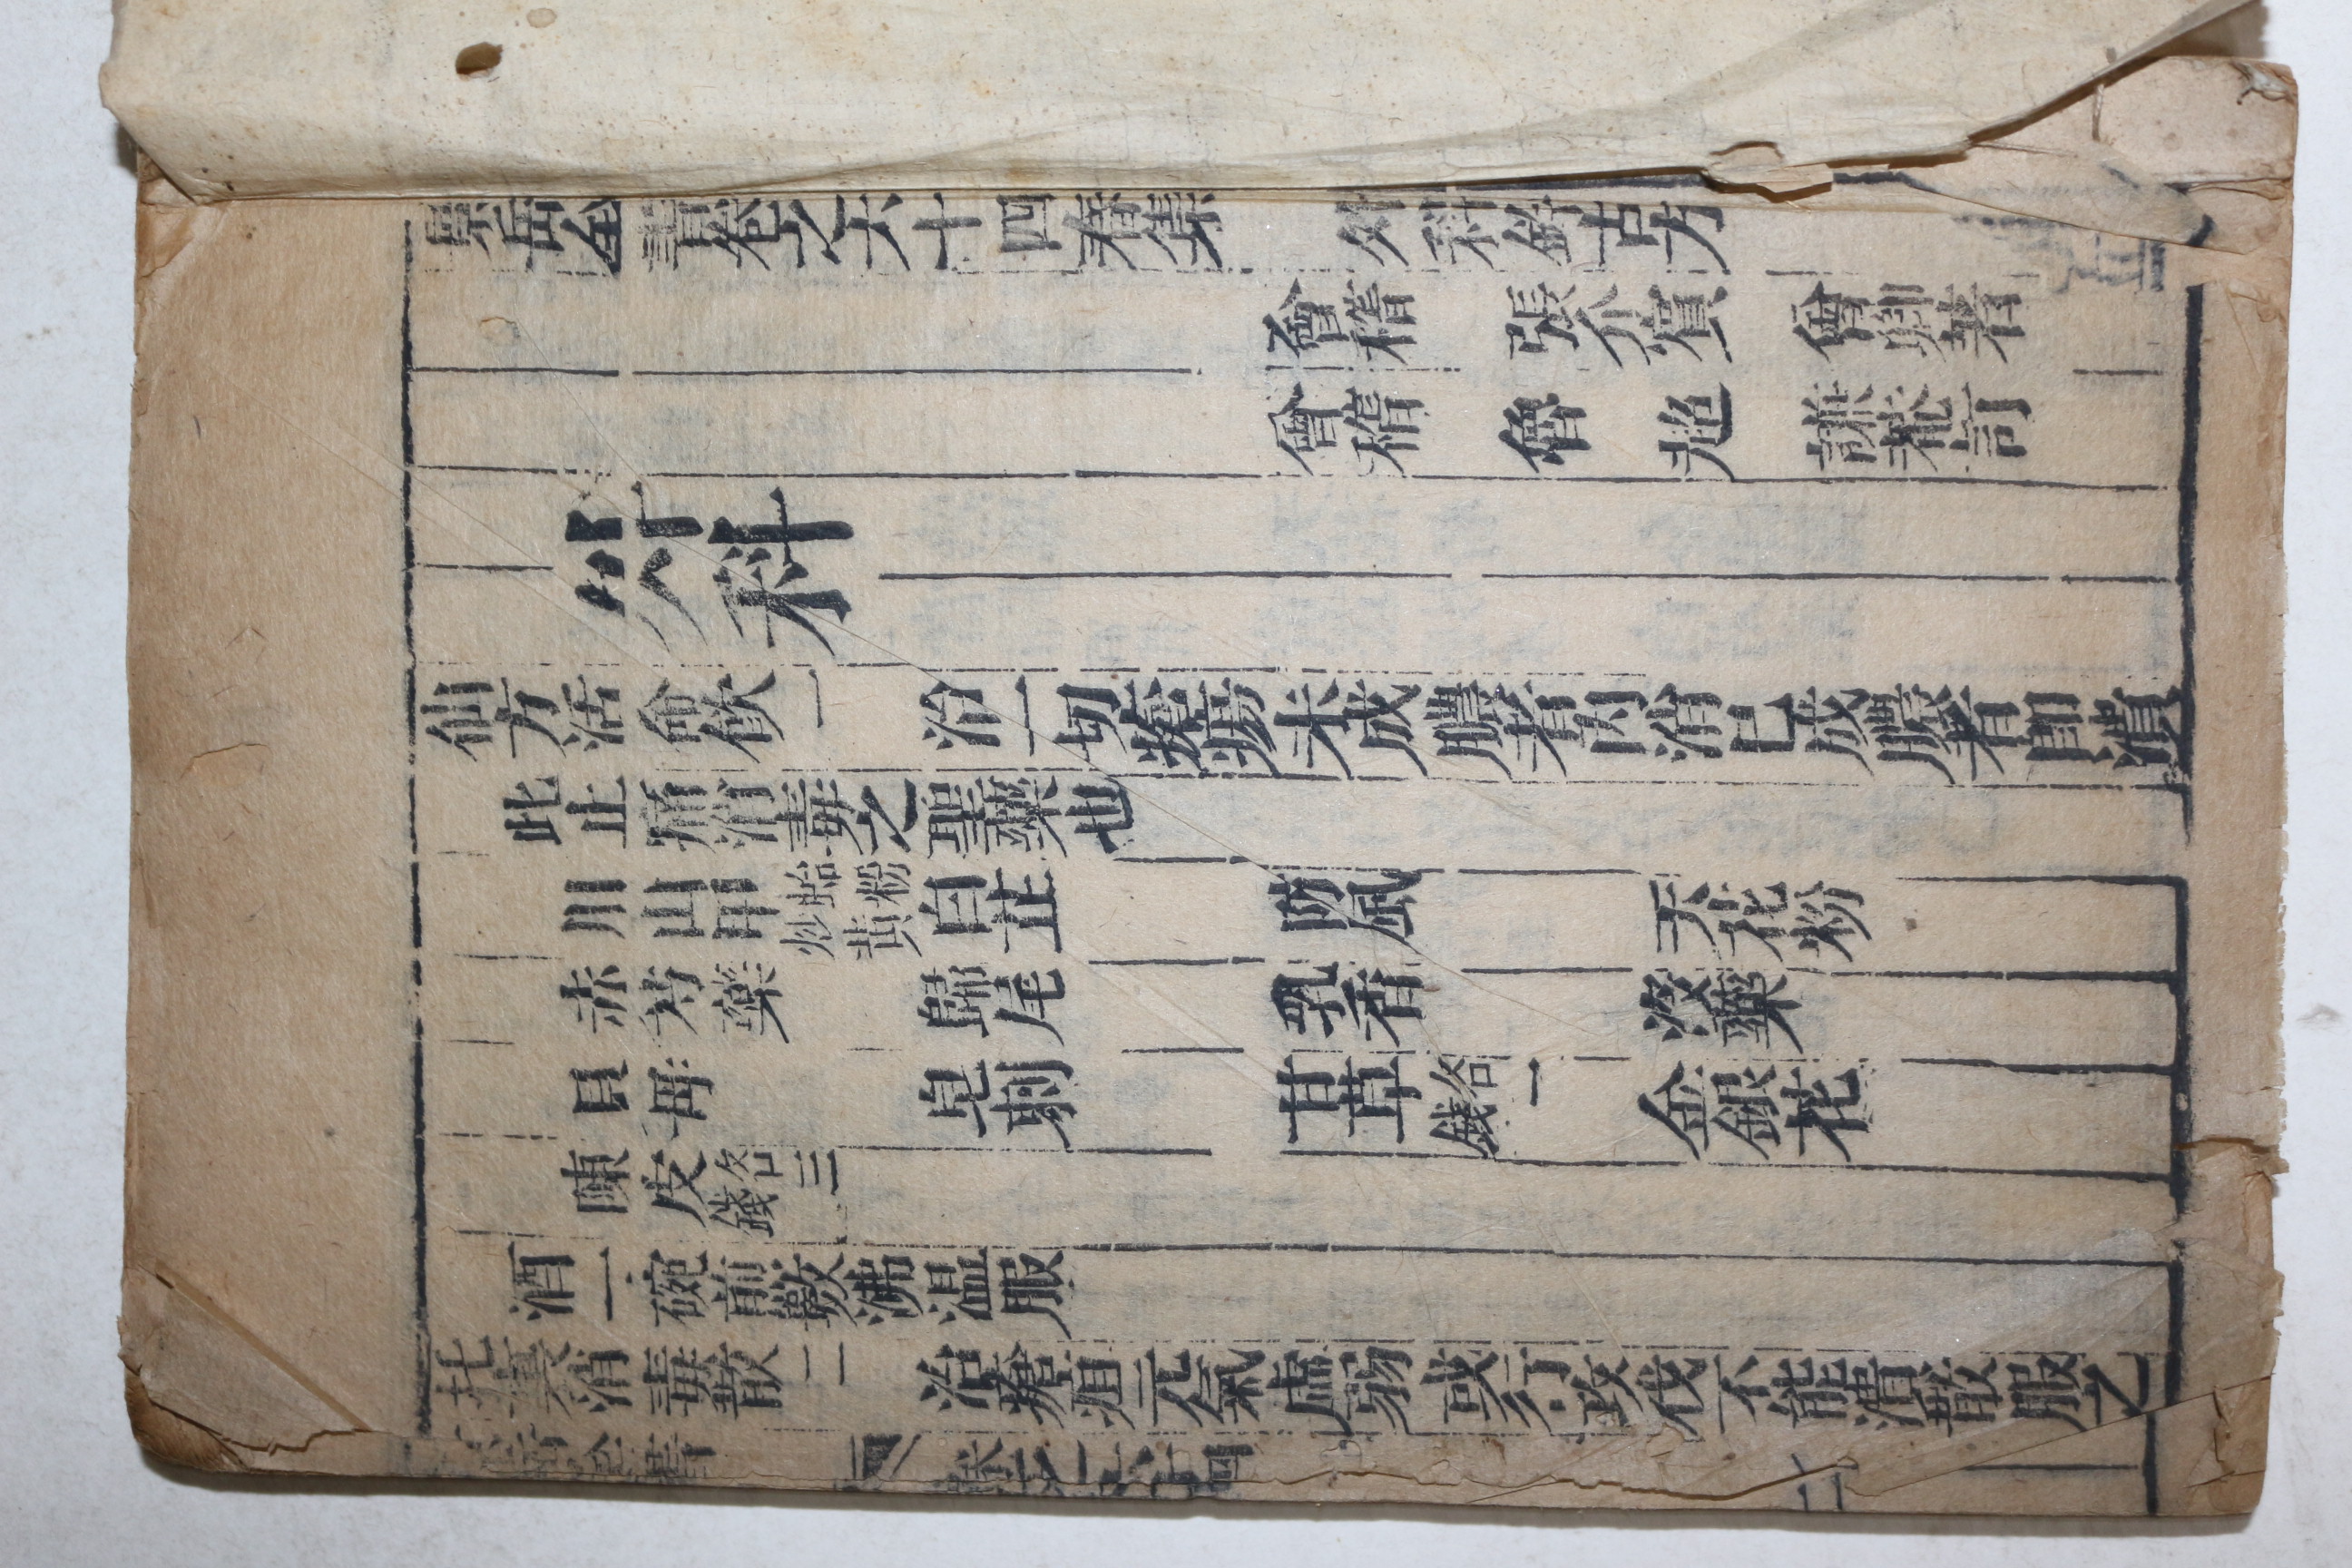 景岳全書卷之六十四春集 外科鈐古方
會稽 張介賓 會卿著
會稽 魯 超 謙菴訂
外科
仙方活命飲一 治一切瘡瘍未成膿者內消已成膿者即潰
此止痛消毒之聖藥也
川山甲蛤粉炒黄 白芷 防風 天花粉
赤芍藥 歸尾 乳香 沒藥
貝母 皂刺 甘草各一錢 金銀花
陳皮各三錢
酒一碗前數沸温服
托裏消毒散二 治瘡疽元氣虛弱或行攻伐不能潰散服之
全書 卷之六十四 二